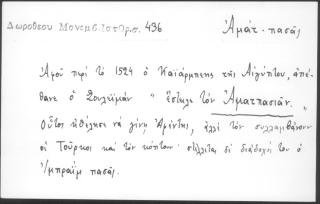 Δωροθέου Μονεμβ. Ἱστορ. σ. 436
Ἀμάτ-πασᾶς
Ἀφοῦ περὶ τὸ 1524 ὁ Καϊάρμπεης τῆς Αἰγύπτου, ἀπέ-
θανε ὁ Σουλεϊμὰν " ἔστειλε τὸν Ἀματπασιᾶν. "
Οὗτος ἠθέλησε νὰ γίνῃ Ἀφέντης, ἀλλὰ τὸν συλλαμβάνουν
οἱ Τοῦρκοι καὶ τὸν κόπτουν· στέλλεται δὲ διάδοχός του ὁ
Ἰμπραΐμ πασᾶς.